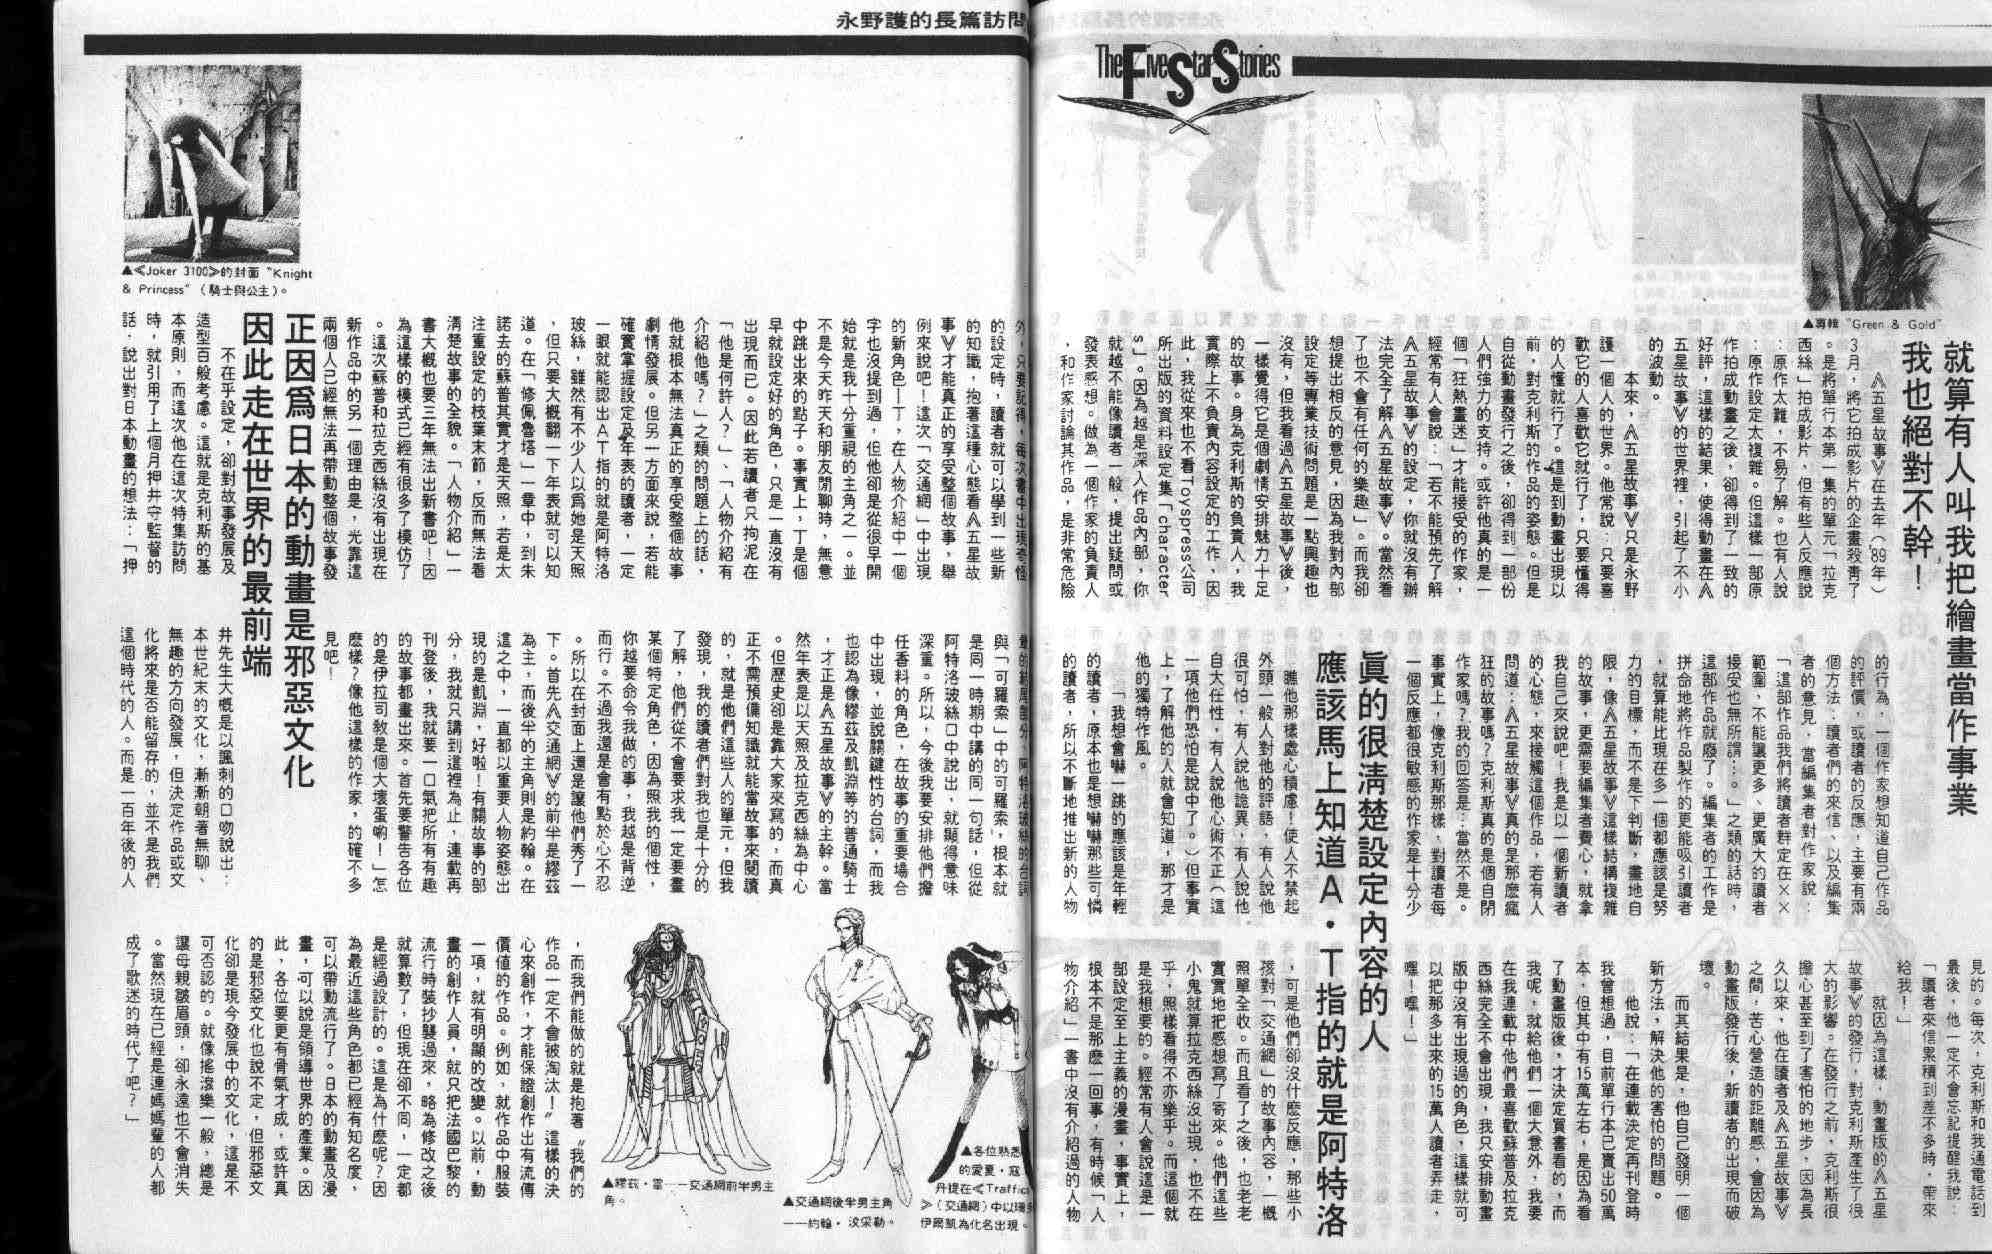 The Five Star Stories
▲專輯 "Green & Gold"
就算有人叫我把繪畫當作事業
我也絕對不幹！
《五星故事》在去年（'89年）
3月，將它拍成影片的企畫殺青了
。是將單行本第一集的單元「拉克
西絲」拍成影片，但有些人反應說
：原作太難，不易了解。也有人說
：原作設定太複雜。但這樣一部原
作拍成動畫之後，卻得到了一致的
好評，這樣的結果，使得動畫在《
五星故事》的世界裡，引起了不小
的波動。
本來，《五星故事》只是永野
護一個人的世界。他常說：只要喜
歡它的人喜歡它就行了，只要懂得
的人懂就行了。這是到動畫出現以
前，對克利斯的作品的姿態。但是
自從動畫發行之後，卻得到一部份
人們強力的支持。或許他真的是一
個「狂熱畫迷」才能接受的作家，
經常有人會說：「若不能預先了解
《五星故事》的設定，你就沒有辦
法完全了解《五星故事》。當然看
了也不會有任何的樂趣」。而我卻
想提出相反的意見，因為我對內部
設定等專業技術問題是一點興趣也
沒有，但我看過《五星故事》後，
一樣覺得它是個劇情安排魅力十足
的故事。身為克利斯的負責人，我
實際上不負責內容設定的工作，因
此，我從來也不看Toyspress公司
所出版的資料設定集「character
s」。因為越是深入作品內部，你
就越不能像讀者一般，提出疑問或
發表感想。做為一個作家的負責人
，和作家討論其作品，是非常危險
的行為，一個作家想知道自己作品
的評價，或讀者的反應，主要有兩
個方法：讀者們的來信、以及編集
者的意見，當編集者對作家說：
「這部作品我們將讀者群定在××
範圍，不能讓更多、更廣大的讀者
接受也無所謂：。」之類的話時，
這部作品就廢了。編集者的工作是
拼命地將作品製作的更能吸引讀者
，就算能比現在多一個都應該是努
力的目標，而不是下判斷，畫地自
限，像《五星故事》這樣結構複雜
的故事，更需要編集者費心，就拿
我自己來說吧！我是以一個新讀者
的心態，來接觸這個作品，若有人
問道：《五星故事》真的是那麼瘋
狂的故事嗎？克利斯真的是個自閉
作家嗎？我的回答是：當然不是。
事實上，像克利斯那樣，對讀者每
一個反應都很敏感的作家是十分少
見的。每次，克利斯和我通電話到
最後，他一定不會忘記提醒我說：
「讀者來信累積到差不多時，帶來
給我！」
就因為這樣，動畫版的《五星
故事》的發行，對克利斯產生了很
大的影響。在發行之前，克利斯很
擔心甚至到了害怕的地步，因為長
久以來，他在讀者及《五星故事》
之間，苦心營造的距離感，會因為
動畫版發行後，新讀者的出現而破
壞。
而其結果是，他自己發明一個
新方法，解決他的害怕的問題。
他說：「在連載決定再刊登時
我曾想過，目前單行本已賣出50萬
本，但其中有15萬左右，是因為看
了動畫版後，才決定買書看的，而
我呢，就給他們一個大意外，我要
在我連載中他們最喜歡蘇普及拉克
西絲完全不會出現，我只安排動畫
版中沒有出現過的角色，這樣就可
以把那多出來的15萬人讀者弄走，
嘿！嘿！」
真的很清楚設定內容的人
應該馬上知道A・T指的就是阿特洛
瞧他那樣處心積慮！使人不禁起
外頭一般人對他的評語，有人說他
很可怕，有人說他詭異，有人說他
自大任性，有人說他心術不正（這
一項他們恐怕是說中了。）但事實
上，了解他的人就會知道，那才是
他的獨特作風。
「我想會嚇一跳的應該是年輕
的讀者，原本也是想嚇嚇那些可憐
的讀者，所以不斷地推出新的人物
，可是他們卻沒什麼反應，那些小
孩對「交通網」的故事內容，一概
照單全收。而且看了之後，也老老
實實地把感想寫了寄來。他們這些
小鬼就算拉克西絲沒出現，也不在
乎，照樣看得不亦樂乎。而這個就
是我想要的。經常有人會說這是一
部設定至上主義的漫畫，事實上，
根本不是那麼一回事，有時候「人
物介紹」一書中沒有介紹過的人物
永野護的長篇訪問
▲《Joker 3100》的封面 "Knight
& Princess"（騎士與公主）。
的設定時，讀者就可以學到一些新
的知識，抱著這種心態看《五星故
事》才能真正的享受整個故事，舉
例來說吧！這次「交通網」中出現
的新角色—T，在人物介紹中一個
字也沒提到過，但他卻是從很早開
始就是我十分重視的主角之一。並
不是今天昨天和朋友閒聊時，無意
中跳出來的點子。事實上，T是個
早就設定好的角色，只是一直沒有
出現而已。因此若讀者只拘泥在
「他是何許人？」、「人物介紹有
介紹他嗎？」之類的問題上的話，
他就根本無法真正的享受整個故事
劇情發展。但另一方面來說，若能
確實掌握設定及年表的讀者，一定
一眼就能認出AT指的就是阿特洛
玻絲，雖然有不少人以為她是天照
，但只要大概翻一下年表就可以知
道。在「修佩魯塔」一章中，到朱
諾去的蘇普其實才是天照，若是太
注重設定的枝葉末節，反而無法看
清楚故事的全貌。「人物介紹」一
書大概也要三年無法出新書吧！因
為這樣的模式已經有很多了模仿了
。這次蘇普和拉克西絲沒有出現在
新作品中的另一個理由是，光靠這
兩個人已經無法再帶動整個故事發
與「可羅索」中的可羅索，根本就
是同一時期中講的同一句話，但從
阿特洛玻絲口中說出，就顯得意味
深重。所以，今後我要安排他們擔
任香料的角色，在故事的重要場合
中出現，並說關鍵性的台詞，而我
也認為像繆茲及凱淵等的普通騎士
，才正是《五星故事》的主幹。當
然年表是以天照及拉克西絲為中心
。但歷史卻是靠大家來寫的，而真
正不需預備知識就能當故事來閱讀
的，就是他們這些人的單元，但我
發現，我的讀者們對我也是十分的
了解，他們從不會要求我一定要畫
某個特定角色，因為照我的個性，
你越要命令我做的事，我越是背逆
而行。不過我還是會有點於心不忍
。所以在封面上還是讓他們秀了一
下。首先《交通網》的前半是繆茲
為主，而後半的主角則是約翰。在
這之中，一直都以重要人物姿態出
現的是凱淵，好啦！有關故事的部
分，我就只講到這裡為止，連載再
刊登後，我就要一口氣把所有有趣
的故事都畫出來。首先要警告各位
的是伊拉司教是個大壞蛋喲！」怎
麼樣？像他這樣的作家，的確不多
見吧！
正因爲日本的動畫是邪惡文化
因此走在世界的最前端
不在乎設定，卻對故事發展及
造型百般考慮。這就是克利斯的基
本原則，而這次他在這次特集訪問
時，就引用了上個月押井守監督的
話：說出對日本動畫的想法：「押
井先生大概是以諷刺的口吻說出：
本世紀末的文化，漸漸朝著無聊、
無趣的方向發展，但決定作品或文
化將來是否能留存的，並不是我們
這個時代的人。而是一百年後的人
，而我們能做的就是抱著〝我們的
作品一定不會被淘汰！〞這樣的決
心來創作，才能保證創作出有流傳
價值的作品。例如，就作品中服裝
一項，就有明顯的改變。以前，動
畫的創作人員，就只把法國巴黎的
流行時裝抄襲過來，略為修改之後
就算數了，但現在卻不同，一定都
是經過設計的。這是為什麼呢？因
為最近這些角色都已經有知名度，
可以帶動流行了。日本的動畫及漫
畫，可以說是領導世界的產業。因
此，各位要更有骨氣才成，或許真
的是邪惡文化也說不定，但邪惡文
化卻是現今發展中的文化，這是不
可否認的。就像搖滾樂一般，總是
讓母親皺眉頭，卻永遠也不會消失
。當然現在已經是連媽媽輩的人都
成了歌迷的時代了吧？」
▲各位熟悉
的愛夏・寇
丹提在《Traffic
》（交通網）中以瑪
伊爾凱為化名出現。
▲交通網後半男主角
——約翰・汶采勒。
▲繆茲・雷——交通網前半男主
角。